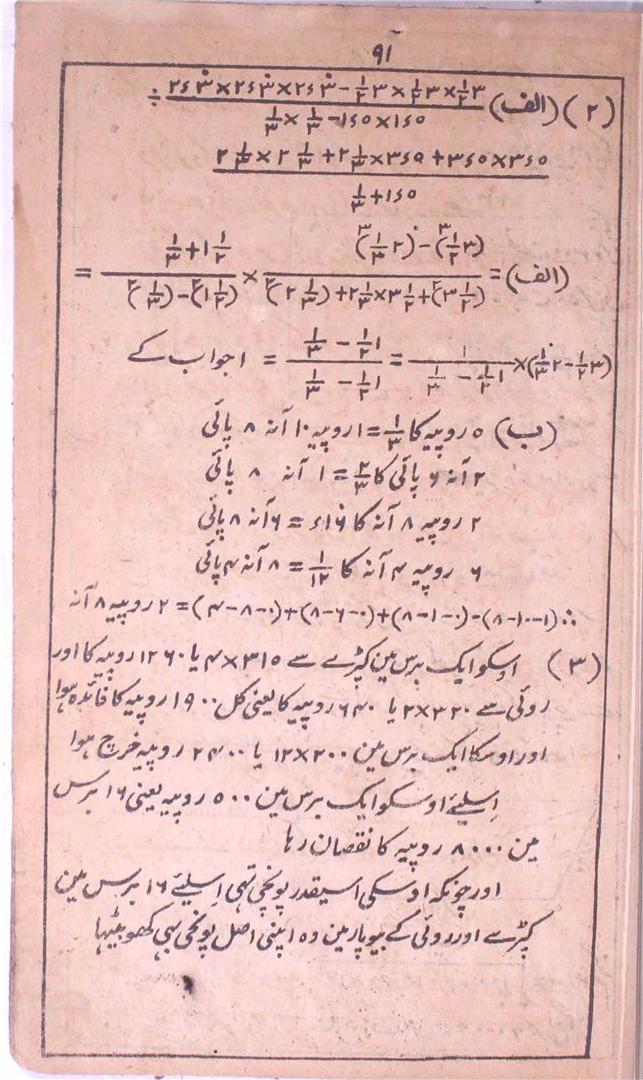 ۹۱
(۲) (الف) (۳ ۱/۲ × ۳ ۱/۲ × ۳ ۱/۲ − ۲٫۳ × ۲٫۳ × ۲٫۳) / (۱٫۵ × ۱٫۵ − ۱/۳ × ۱/۳) ÷
(۳٫۵ × ۳٫۵ + ۳٫۵ × ۲ ۱/۳ + ۲ ۱/۳ × ۲ ۱/۳) / (۱٫۵ + ۱/۳)
(الف) = ((۳ ۱/۲)^۳ − (۲ ۱/۳)^۳) / ((۳ ۱/۲)^۲ + ۳ ۱/۲ × ۲ ۱/۳ + (۲ ۱/۳)^۲) × (۱ ۱/۲ + ۱/۳) / ((۱ ۱/۲)^۲ − (۱/۳)^۲) =
(۳ ۱/۲ − ۲ ۱/۳) × ۱ / (۱ ۱/۲ − ۱/۳) = (۱ ۱/۲ − ۱/۳) / (۱ ۱/۲ − ۱/۳) = ۱ جواب کے
(ب) ۵ روپیہ کا ۱/۳ = ۱ روپیہ ۱۰ آنہ ۸ پائی
۲ آنہ ۶ پائی کا ۲/۳ = ۱ آنہ ۸ پائی
۲ روپیہ ۸ آنہ کا ۱۶٫ = ۶ آنہ ۸ پائی
۶ روپیہ ۴ آنہ کا ۱/۱۲ = ۸ آنہ ۴ پائی
∴ (۱-۱۰-۸)-(۰-۱-۸)+(۰-۶-۸)+(۰-۸-۴) = ۲ روپیہ ۸ آنہ
(۳) اوسکو ایک برس مین کپڑے سے ۳۱۵×۴ یا ۱۲۶۰ روپیہ کا اور
روئی سے ۳۲۰×۲ یا ۶۴۰ روپیہ کا یعنی کل ۱۹۰۰ روپیہ کا فائدہ ہوا
اور اوسکا ایک برس مین ۲۰۰×۱۲ یا ۲۴۰۰ روپیہ خرچ ہوا
اِسلیئے اوسکو ایک برس مین ۵۰۰ روپیہ یعنی ۱۶ برس
مین ۸۰۰۰ روپیہ کا نقصان رہا
اور چونکہ اوسکی اسیقدر پونجی تہی اِسلیئے ۱۶ برس مین
کپڑے اور روئی کے بیوپار مین وہ اپنی اصل پونجی بہی کھو بیٹہا